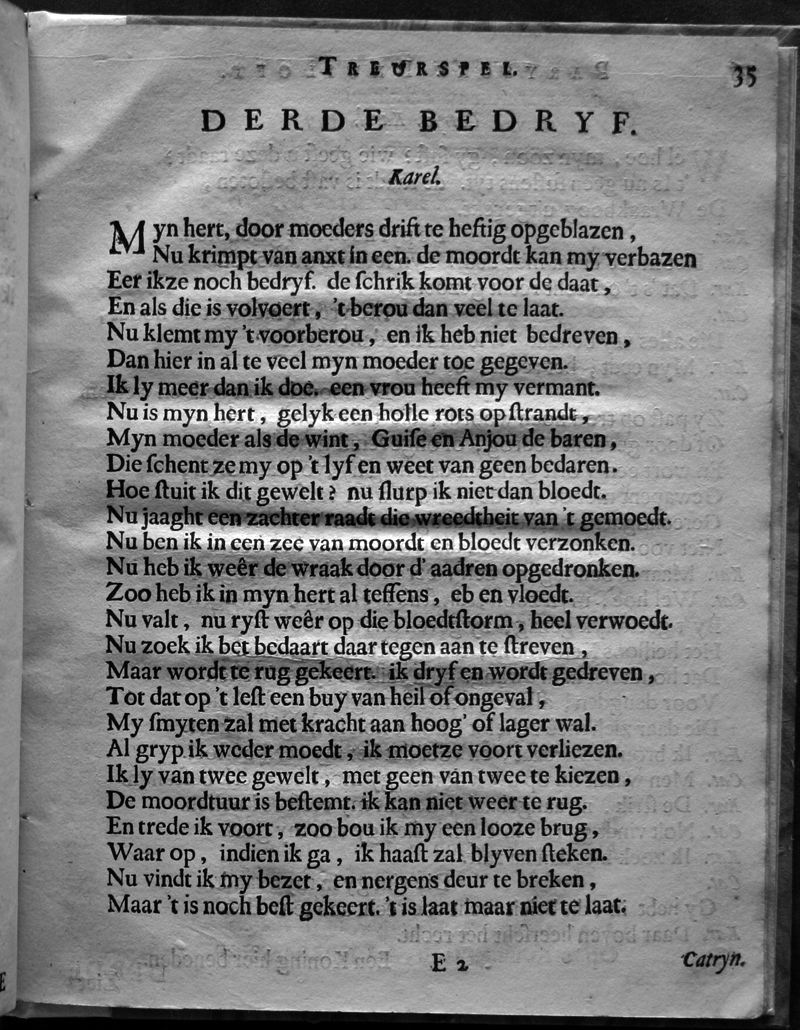 TREURSPEL. 35
DERDE BEDRYF.
Karel.
Myn hert, door moeders drift te heftig opgeblazen,
Nu krimpt van anxt in een. de moordt kan my verbazen
Eer ikze noch bedryf. de ſchrik komt voor de daat,
En als die is volvoert, 't berou dan veel te laat.
Nu klemt my 't voorberou, en ik heb niet bedreven,
Dan hier in al te veel myn moeder toe gegeven.
Ik ly meer dan ik doe. een vrou heeft my vermant.
Nu is myn hert, gelyk een holle rots op ſtrandt,
Myn moeder als de wint, Guiſe en Anjou de baren,
Die ſchent ze my op 't lyf en weet van geen bedaren.
Hoe ſtuit ik dit gewelt? nu ſlurp ik niet dan bloedt.
Nu jaaght een zachter raadt die wreedtheit van 't gemoedt.
Nu ben ik in een zee van moordt en bloedt verzonken.
Nu heb ik weêr de wraak door d' aadren opgedronken.
Zoo heb ik in myn hert al teffens, eb en vloedt.
Nu valt, nu ryſt weêr op die bloedtſtorm, heel verwoedt.
Nu zoek ik bet bedaart daar tegen aan te ſtreven,
Maar wordt te rug gekeert. ik dryf en wordt gedreven,
Tot dat op 't leſt een buy van heil of ongeval,
My ſmyten zal met kracht aan hoog' of lager wal.
Al gryp ik weder moedt, ik moetze voort verliezen.
Ik ly van twee gewelt, met geen van twee te kiezen,
De moordtuur is beſtemt. ik kan niet weer te rug.
En trede ik voort, zoo bou ik my een looze brug,
Waar op, indien ik ga, ik haaſt zal blyven ſteken.
Nu vindt ik my bezet, en nergens deur te breken,
Maar 't is noch beſt gekeert. 't is laat maar niet te laat.
E 2 Catryn.